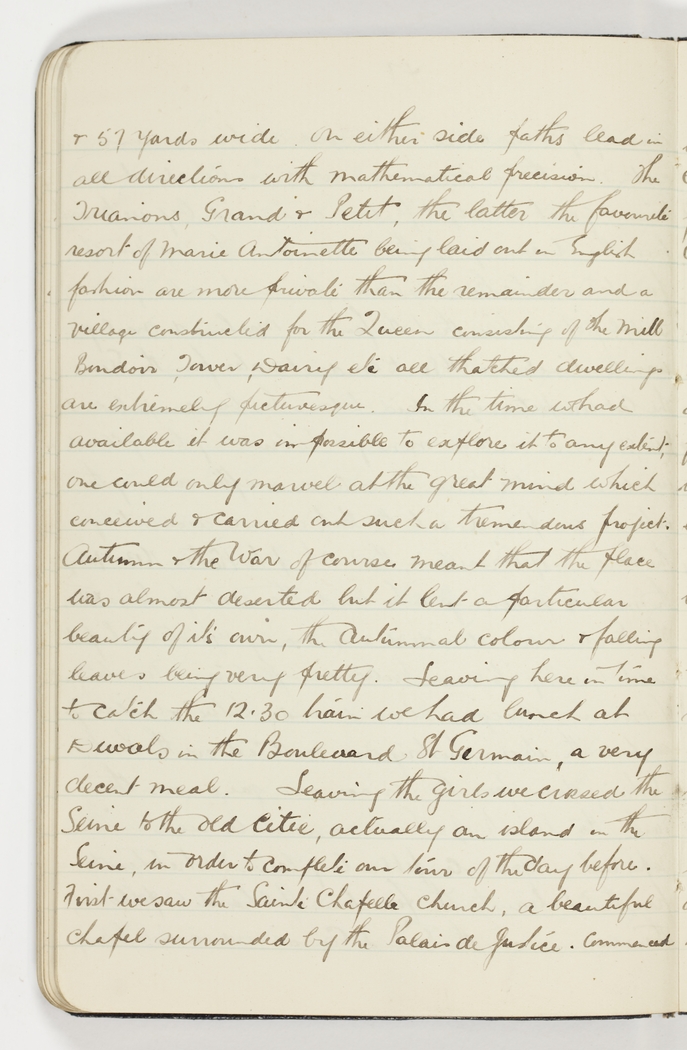 & 57 yards wide. On either side paths lead in
all directions with mathematical precision. The
Trianons, Grand & Petit, the latter the favourite
resort of Marie Antoinette being laid out in English
fashion are more private than the remainder and a
village constructed for the Queen consisting of the Mill
Boudoir, Tower, Dairy etc all thatched dwellings
are extremely picturesque. In the time we had
available it was impossible to explore it to any extent,
one could only marvel at the great mind which
conceived & carried out such a tremendous project.
Autumn & the War of course meant that the place
was almost deserted but it lent a particular
beauty of it's own, the Autumnal colour & falling
leaves being very pretty. Leaving here in time
to catch the 12.30 train we had lunch at
Duvals in the Boulevard St Germain, a very
decent meal. Leaving the girls we crossed the
Seine to the old Citie, actually an island in the
Seine, in order to complete our tour of the day before.
First we saw the Sainte Chapelle church, a beautiful
chapel surrounded by the Palais de Justice. Commenced